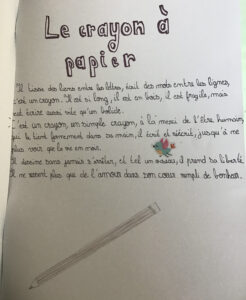 Le crayon à
papier
Il tisse des liens entre les lettres, écrit des mots entre les lignes,
c'est un crayon. Il est si long, il est en bois, il est fragile, mais
écrire aussi vite qu'un bolide.
C'est un crayon, un simple crayon, à la merci de l'être humain,
qui le tient fermement dans sa main, il écrit et réécrit, jusqu'à ne
plus voir que la vie en
Il dessine sans jamais s'arrêter, et tel un oiseau, il prend sa liberté
Il ne ressent plus que de l'amour dans son cœur rempli de bonheur.